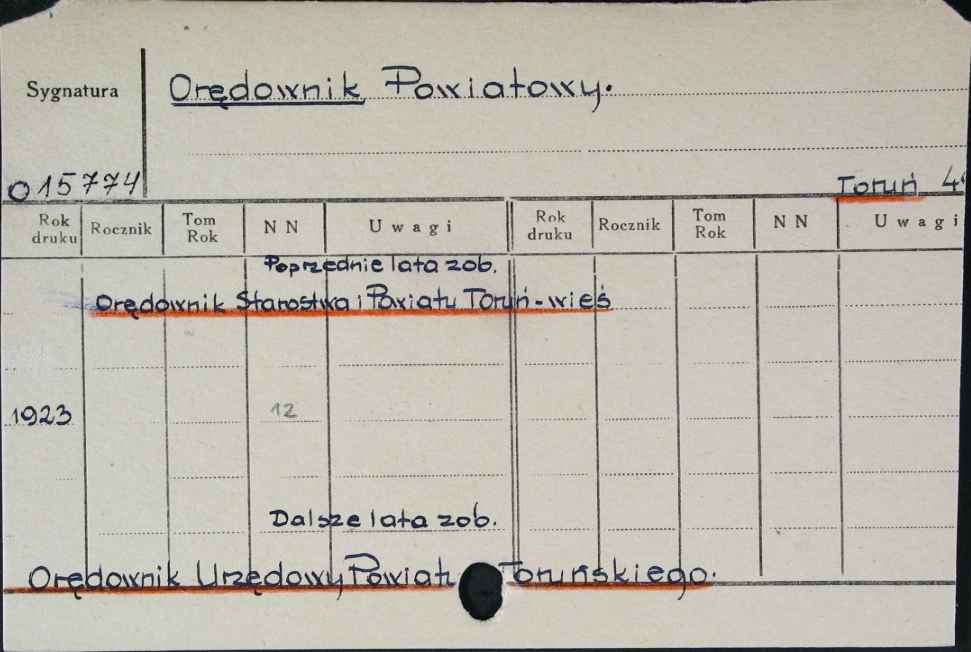 Sygnatura
Orędownik Powiatowy.
O 15774
Toruń 4°
Rok druku Rocznik Tom Rok N N Uwagi Rok druku Rocznik Tom Rok N N Uwagi
Poprzednie lata zob.
Orędownik Starostwa i Powiatu Toruń-wieś
1923 12
Dalsze lata zob.
Orędownik Urzędowy Powiatu Toruńskiego.